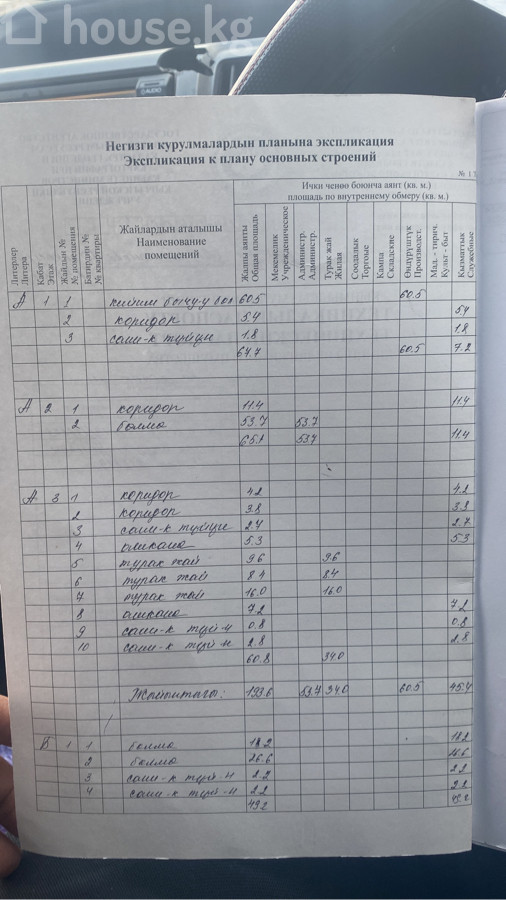 house.kg
AUDIO
Негизги курулмалардын планына экспликация
Экспликация к плану основных строений
Литерлер
Литера
Кабат
Этаж
Жайдын №
№ помещения
Батирдин №
№ квартиры
Жайлардын аталышы
Наименование
помещений
Ички ченөө боюнча аянт (кв. м.)
площадь по внутреннему обмеру (кв. м.)
Жалпы аянты
Общая площадь
Мекемелик
Учрежденическое
Администр.
Администр.
Турак жай
Жилая
Соодалык
Торговые
Кампа
Складские
Өндүрүштүк
Производст.
Мад. - тирич.
Культ - быт
Кызматтык
Служебные
А 1 1 60.5 60.5
2 коридор 5.4 5.4
3 1.8 1.8
67.7 60.5 7.2
А 2 1 коридор 11.4 11.4
2 бөлмө 53.7 53.7
65.1 53.7 11.4
А 3 1 коридор 4.2 4.2
2 коридор 3.8 3.8
3 2.7 2.7
4 ашкана 5.3 5.3
5 турак жай 9.6 9.6
6 турак жай 8.4 8.4
7 турак жай 16.0 16.0
8 ашкана 7.2 7.2
9 0.8 0.8
10 2.8 2.8
60.8 34.0
193.6 53.7 34.0 60.5 45.4
Б 1 1 бөлмө 18.2 18.2
2 бөлмө 26.6 26.6
3 2.2 2.2
4 2.2 2.2
49.2 49.2